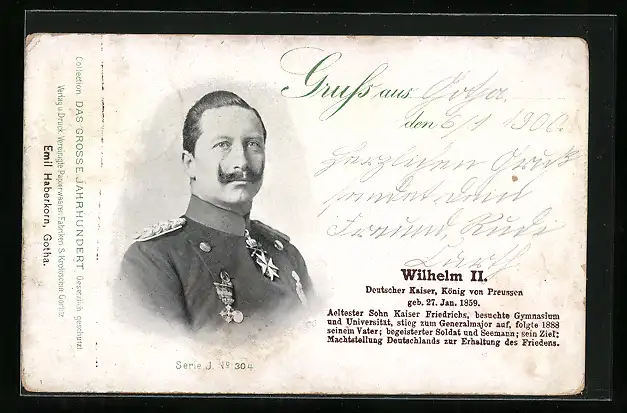 Gruss aus Gotha.
den 6/1 1900.
Herzlichen Gruß
sendet Dein
Freund, Rudi
Wilhelm II.
Deutscher Kaiser, König von Preussen
geb. 27. Jan. 1859.
Aeltester Sohn Kaiser Friedrichs, besuchte Gymnasium
und Universität, stieg zum Generalmajor auf, folgte 1888
seinem Vater; begeisterter Soldat und Seemann; sein Ziel:
Machtstellung Deutschlands zur Erhaltung des Friedens.
Serie J. No 304
Collection DAS GROSSE JAHRHUNDERT Gesetzlich geschützt
Verlag u. Druck. Vereinigte Papierwaaren Fabriken S. Krotoschin Görlitz
Emil Haberkorn, Gotha.